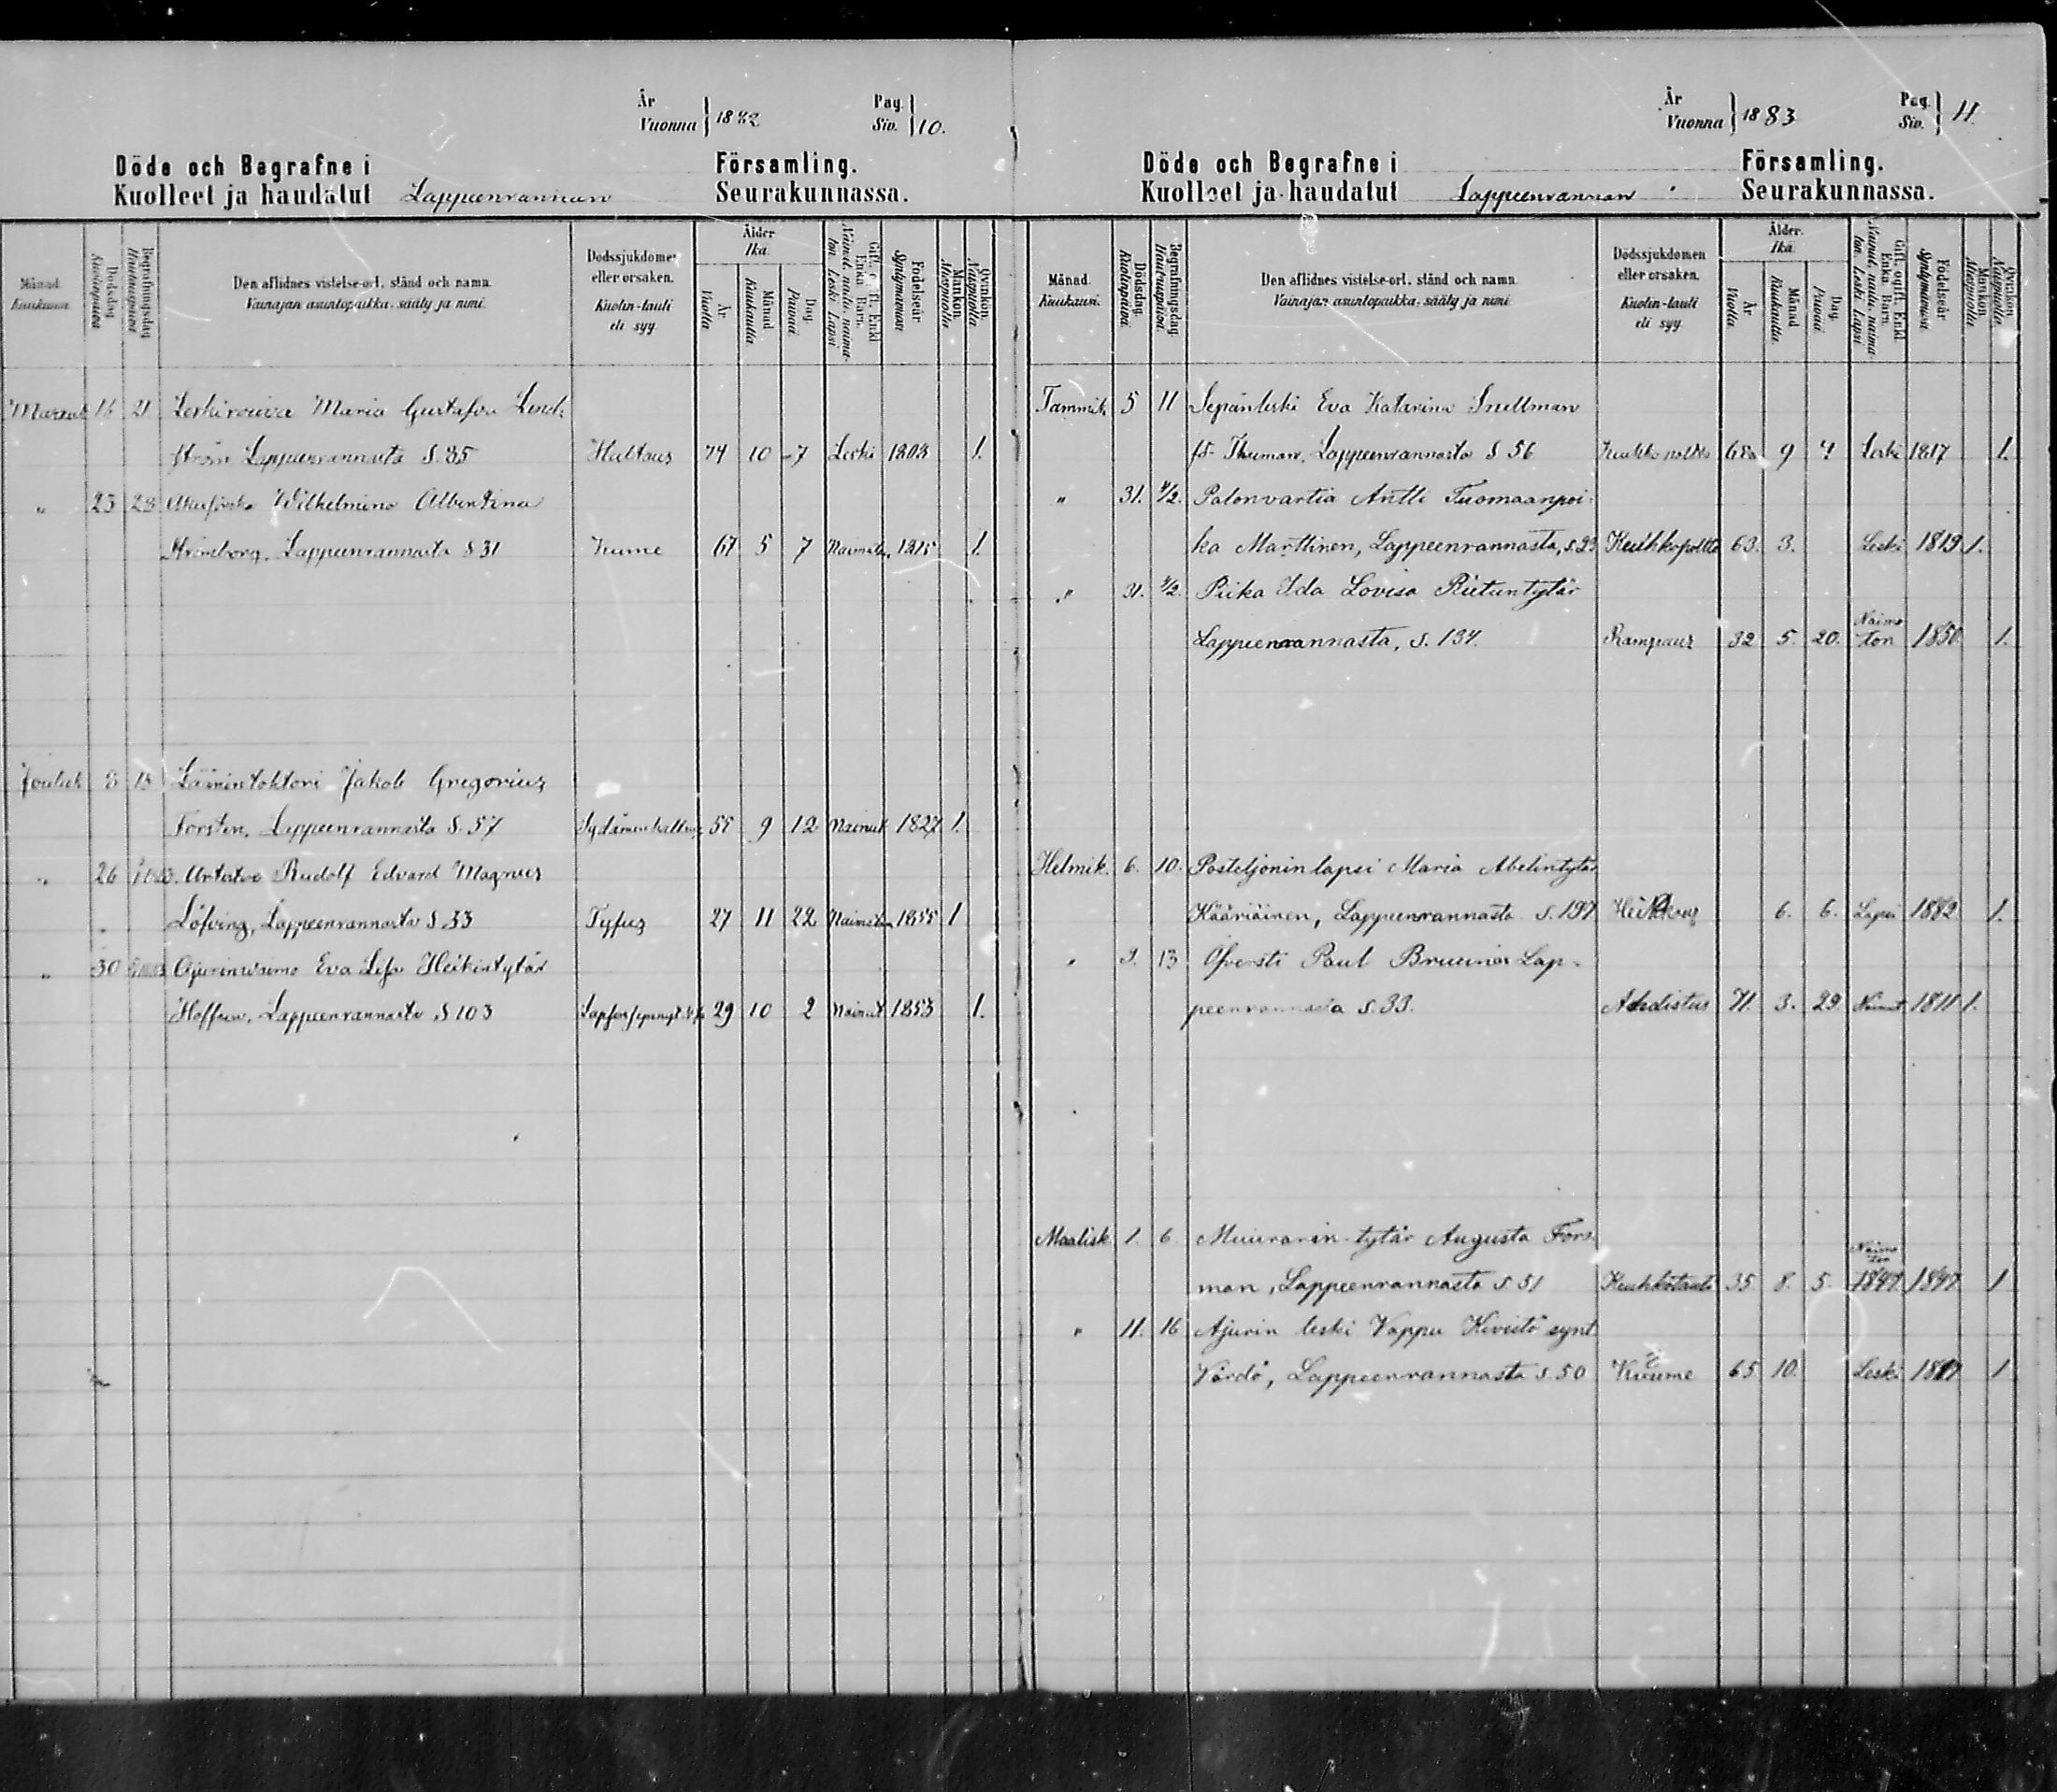 År
Vuonna } 1882
Pag.
Siv. } 10.
Döde och Begrafne i Församling.
Kuolleet ja haudatut Lappeenrannan Seurakunnassa.
Månad. Kuukausi.
Dödsdag. Kuolinpäivä.
Begrafningsdag. Hautauspäivä.
Den aflidnes vistelse-ort, stånd och namn.
Vainajan asuntopaikka, sääty ja nimi.
Dödssjukdomen eller orsaken.
Kuolin-tauti eli syy.
Ålder. Ikä.
År. Vuotta.
Månad. Kuukautta.
Dag. Päivää.
Gift, ogift, Enkl. Enka. Barn.
Nainut, naitu, naimaton. Leski. Lapsi.
Födelseår. Syntymävuosi.
Mankön. Miespuolia.
Qvinkön. Naispuolia.
Marrask. 21 Leskirouva Maria Gustafva Lind-
ström Lappeenrannasta S. 85 Halvaus 74 10 7 Leski 1808 1.
" 23 28 Wilhelmina Albertina
Lappeenrannasta S 31 Kuume 67 5 7 Naimaton 1815 1.
Jouluk 8 15 Läänintohtori Jakob Gregorius
Forstén, Lappeenrannasta S. 57 Sydämenhalvaus 55 9 12 Nainut 1827 1.
" 26 Rudolf Edvard Magnus
Löfving, Lappeenrannasta S. 33 Tyfus 27 11 22 Naimaton 1855 1
" 30 Ajurinvaimo Eva Lisa Heikintytär
Lappeenrannasta S 103 29 10 2 Nainut 1853 1.
År
Vuonna } 1883
Pag.
Siv. } 11.
Döde och Begrafne i Församling.
Kuolleet ja haudatut Lappeenrannan Seurakunnassa.
Månad. Kuukausi.
Dödsdag. Kuolinpäivä.
Begrafningsdag. Hautauspäivä.
Den aflidnes vistelse-ort, stånd och namn.
Vainajan asuntopaikka, sääty ja nimi.
Dödssjukdomen eller orsaken.
Kuolin-tauti eli syy.
Ålder. Ikä.
År. Vuotta.
Månad. Kuukautta.
Dag. Päivää.
Gift, ogift, Enkl. Enka. Barn.
Nainut, naitu, naimaton. Leski. Lapsi.
Födelseår. Syntymävuosi.
Mankön. Miespuolia.
Qvinkön. Naispuolia.
Tammik. 5 11 Sepänleski Eva Katarina Snellman
fö. Thuman, Lappeenrannasta S 56 Keuhkopoltto 9 4 Leski 1817 1.
" 31. 4/2. Palonvartia Antti Tuomaanpoi-
ka Marttinen, Lappeenrannasta, s. 29 Keuhkopoltto 63. 3. Leski 1819 1.
" 31. 4/2. Piika Ida Lovisa Riitantytär
Lappeenrannasta, s. 134. Rampaus 32 5. 20. Naimaton 1850 1.
Helmik. 6. 10. Posteljoninlapsi Maria Abelintytär
Kääriäinen, Lappeenrannasta s. 197 Heikkous 6. 6. Lapsi 1882 1.
" 9. 13 Öfversti Paul Bruuner Lap-
peenrannasta s. 33. Ahdistus 71. 3. 29. Nainut 1811 1.
Maalisk. 1. 6. Muurarin-tytär Augusta Fors-
man, Lappeenrannasta s. 51 Keuhkotauti 35 8. 5. Naimaton 1847 1847 1
" 11. 16 Ajurin leski Vappu Kivistö synt.
Värdö, Lappeenrannasta s. 50 Kuume 65 10. Leski 1817 1